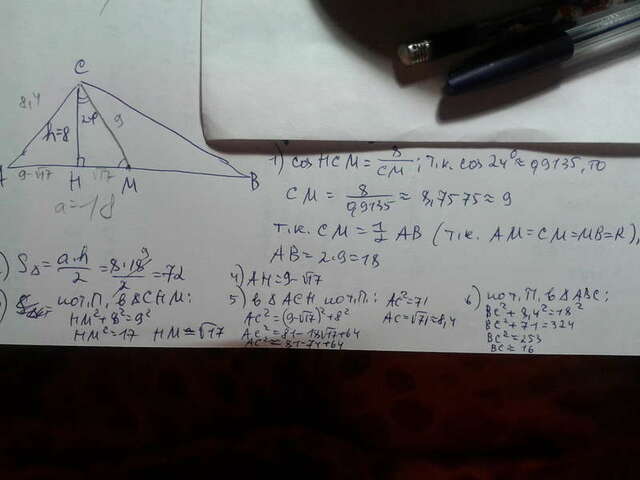 C
8,4
h=8
24
9
A
9-√17
H
√17
M
B
a=18
1) cos HCM = 8/CM; т.к. cos 24° ≈ 0,9135, то
CM = 8/0,9135 ≈ 8,7575 ≈ 9
т.к. CM = 1/2 AB (т.к. AM=CM=MB=R),
AB = 2·9=18
) S∆ = a·h/2 = 8·18/2 = 72
9
по т.П. в ∆CHM:
HM²+8²=9²
HM²=17 HM=√17
4) AH=9-√17
5) в ∆ACH по т.П.:
AC²=(9-√17)²+8²
AC²=81-18√17+64
AC²≈81-74+64
AC²=71
AC=√71≈8,4
6) по т.П. в ∆ABC:
BC²+8,4²=18²
BC²+71=324
BC²=253
BC≈16